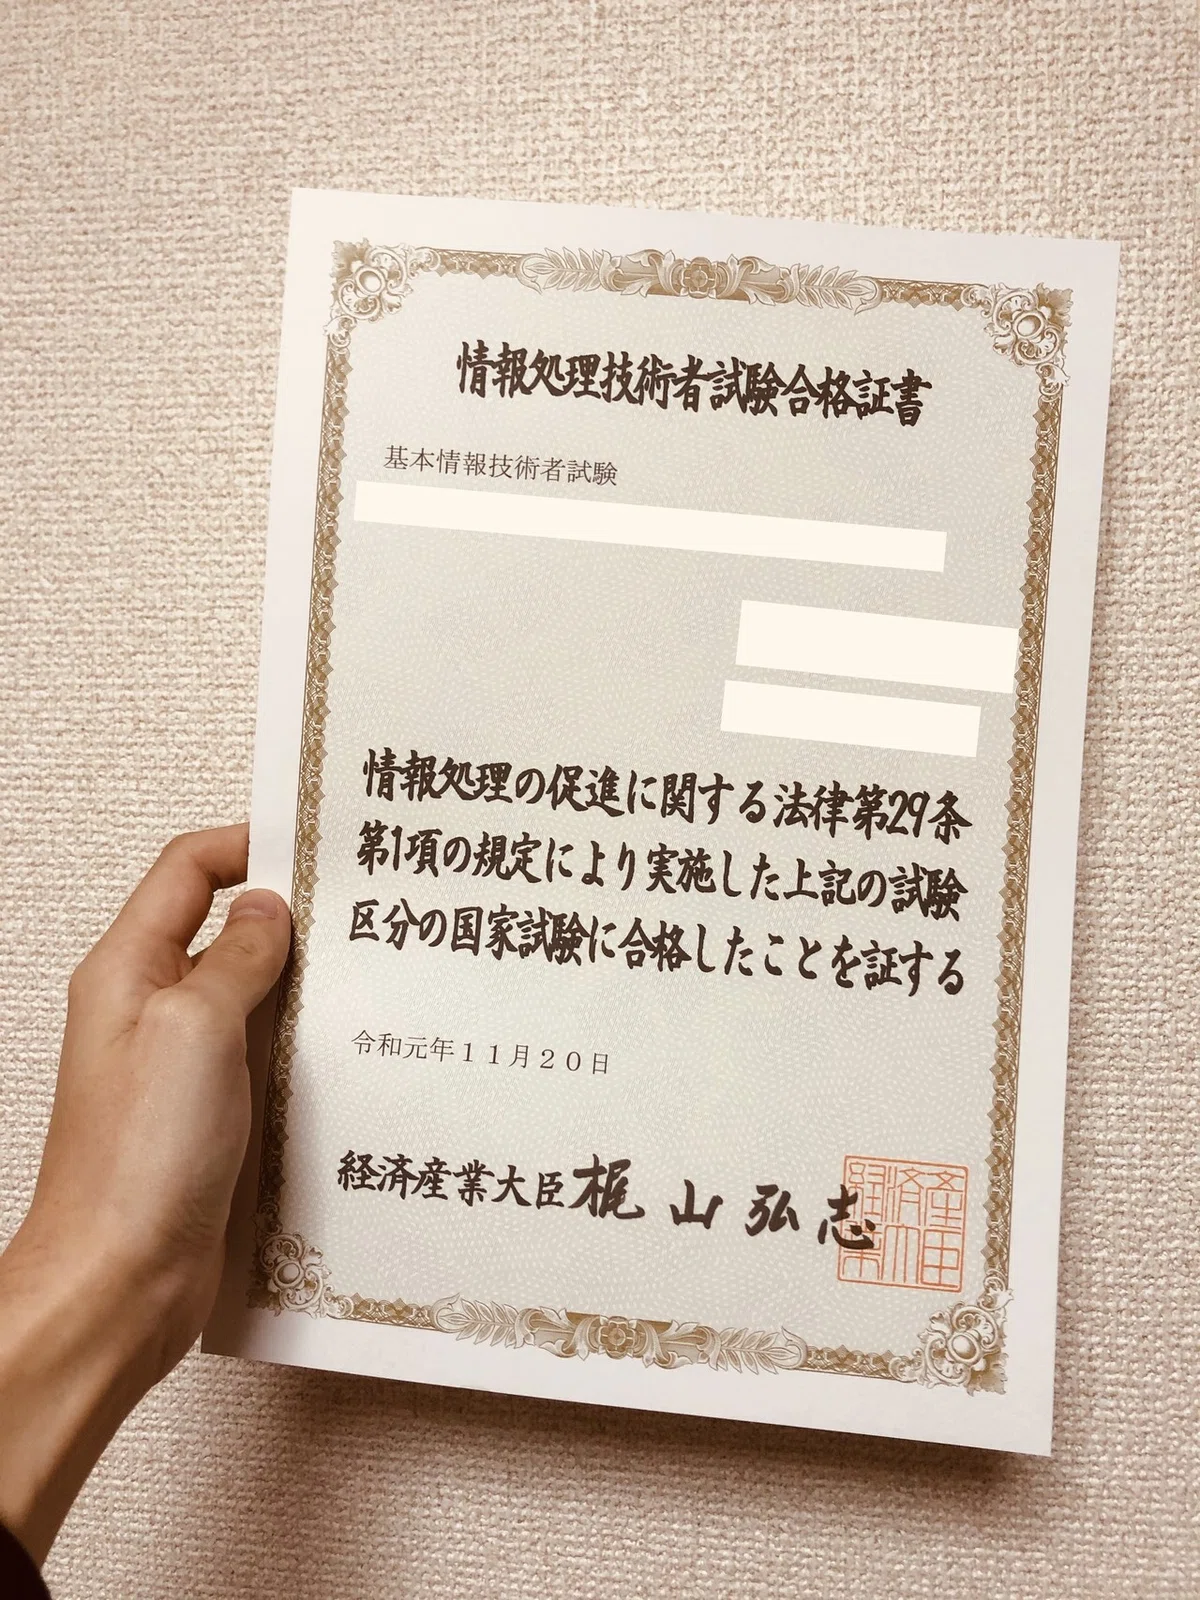 情報処理技術者試験合格証書
基本情報技術者試験
情報処理の促進に関する法律第29条
第1項の規定により実施した上記の試験
区分の国家試験に合格したことを証する
令和元年11月20日
経済産業大臣 梶山弘志